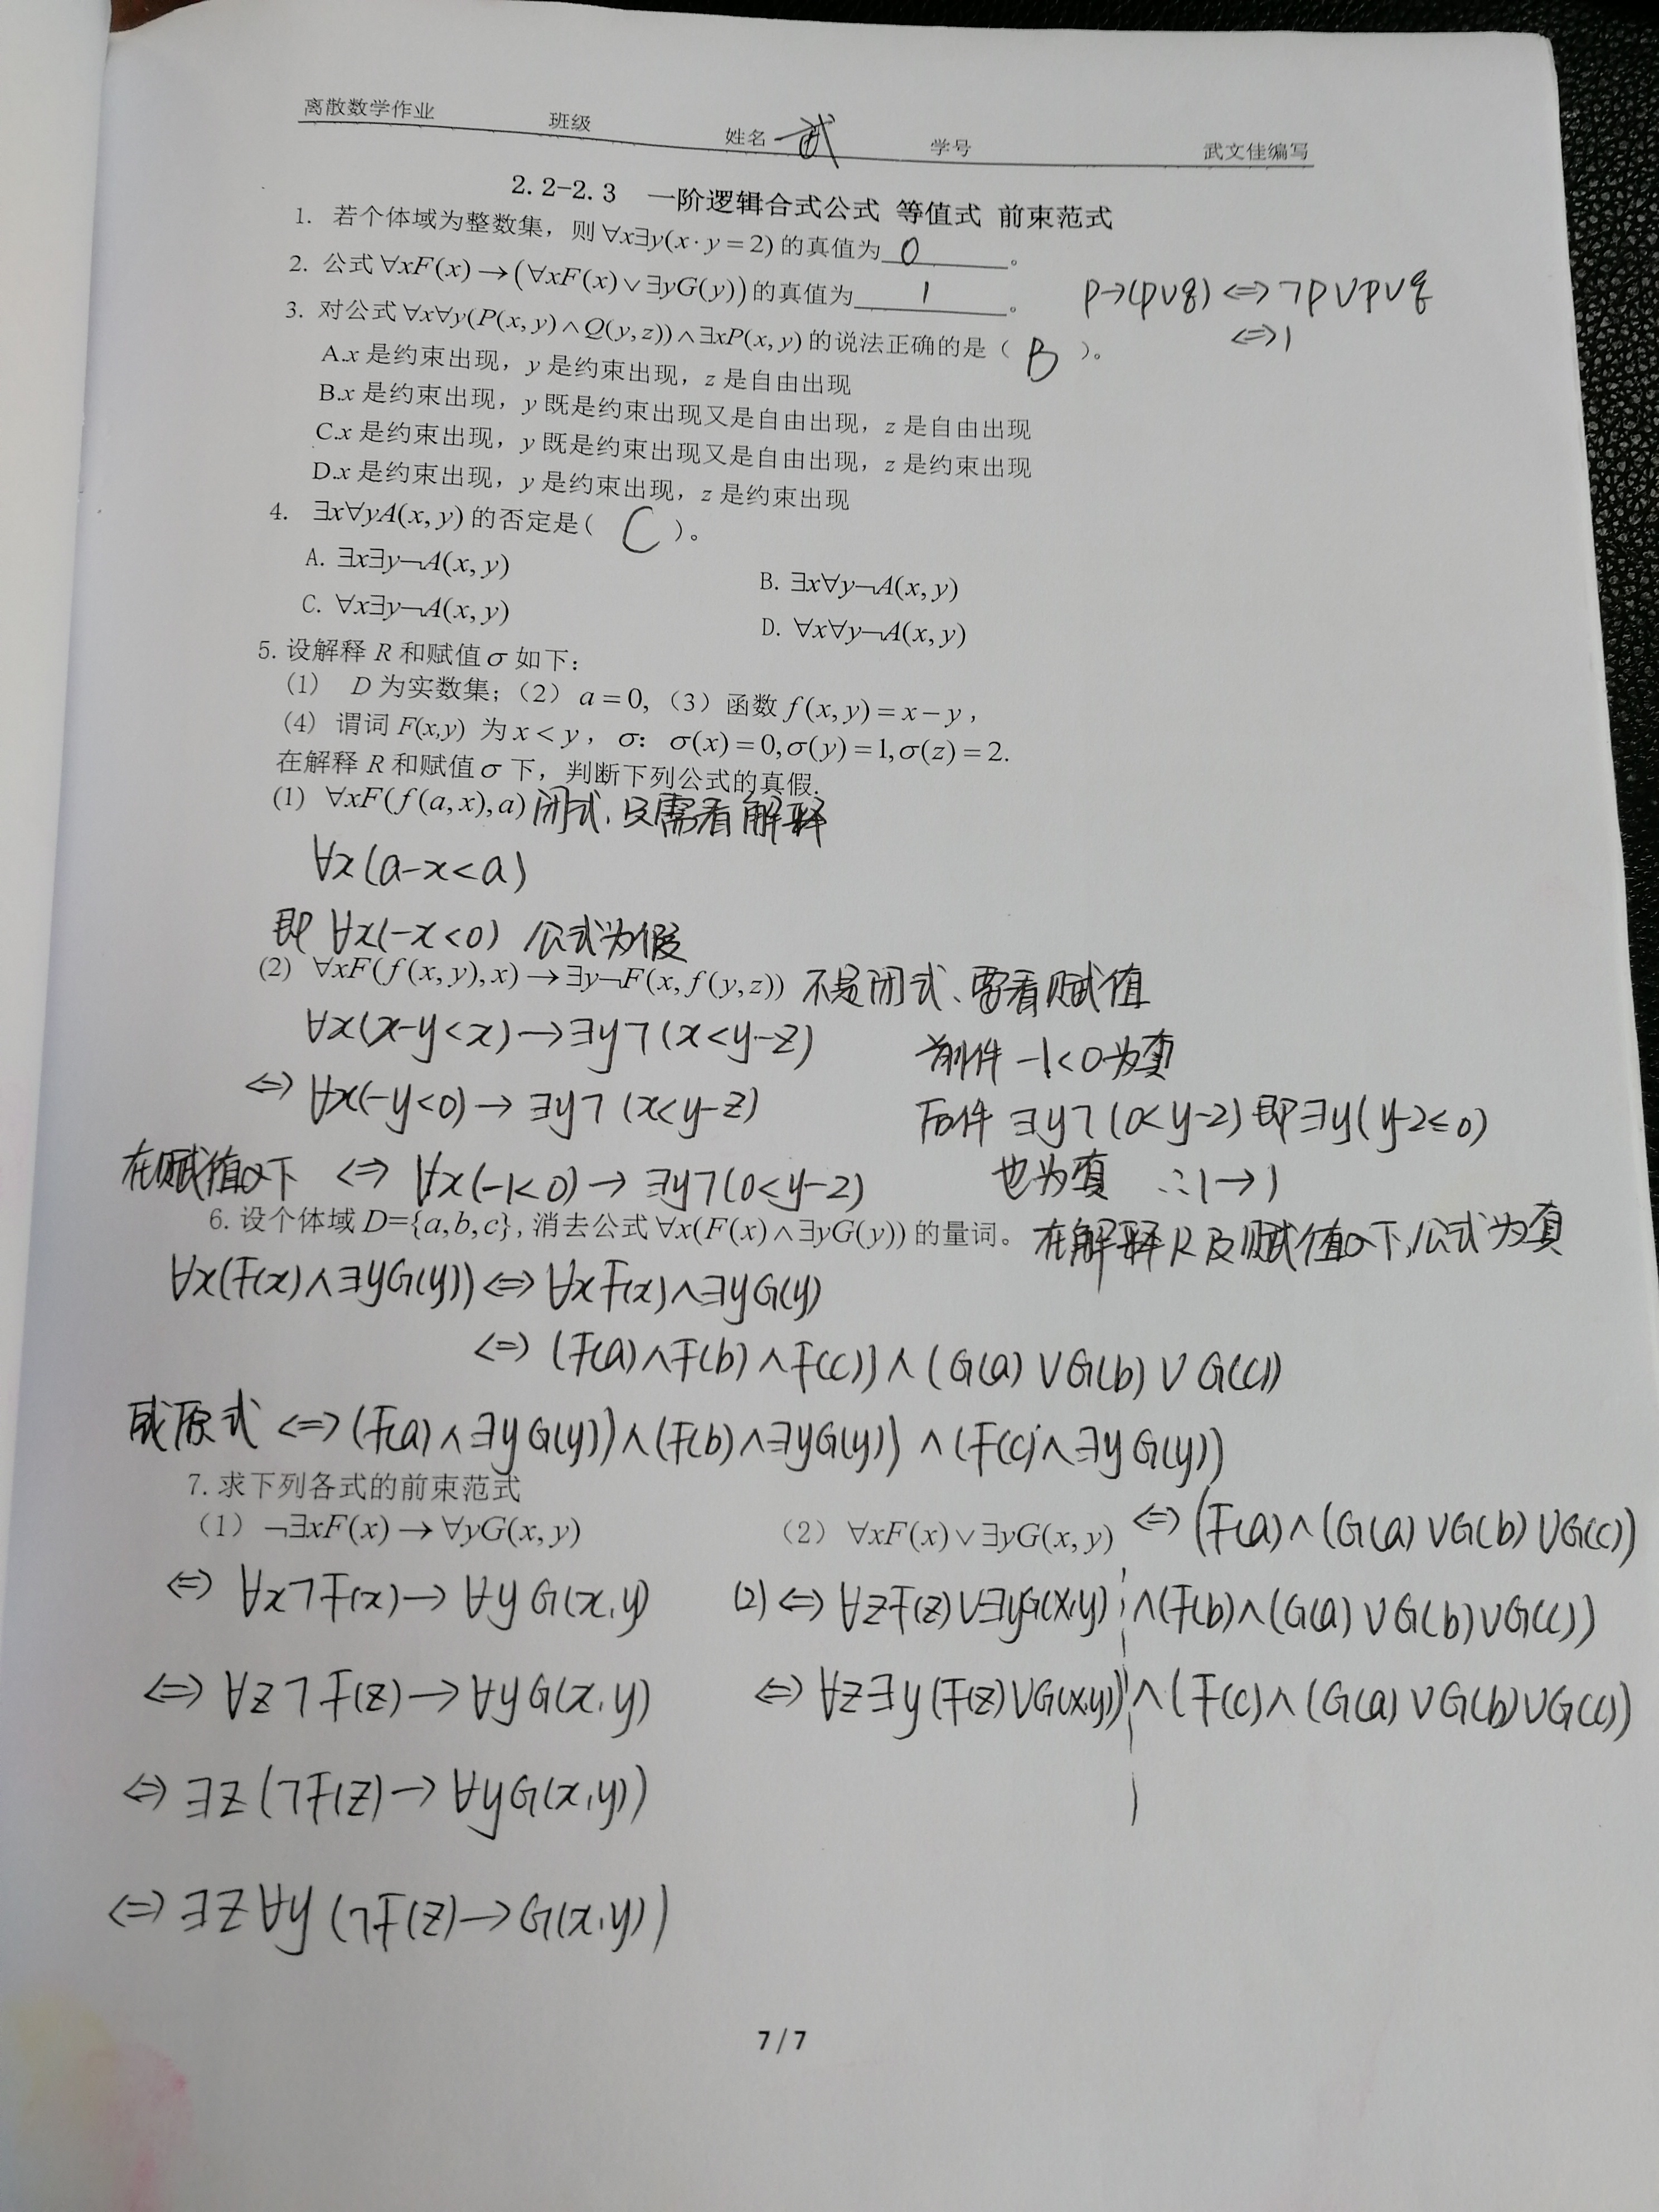 离散数学作业 班级 姓名 武 学号 武文佳编写
2.2-2.3 一阶逻辑合式公式 等值式 前束范式
1. 若个体域为整数集，则∀x∃y(x·y=2)的真值为 0 。
2. 公式∀xF(x)→(∀xF(x)∨∃yG(y))的真值为 1 。 p→(p∨q)⇔¬p∨p∨q
⇔1
3. 对公式∀x∀y(P(x,y)∧Q(y,z))∧∃xP(x,y)的说法正确的是（ B ）。
A.x 是约束出现，y 是约束出现，z 是自由出现
B.x 是约束出现，y 既是约束出现又是自由出现，z 是自由出现
C.x 是约束出现，y 既是约束出现又是自由出现，z 是约束出现
D.x 是约束出现，y 是约束出现，z 是约束出现
4. ∃x∀yA(x,y)的否定是( C )。
A. ∃x∃y¬A(x,y) B. ∃x∀y¬A(x,y)
C. ∀x∃y¬A(x,y) D. ∀x∀y¬A(x,y)
5. 设解释 R 和赋值σ如下：
(1) D 为实数集；（2）a=0,（3）函数f(x,y)=x−y，
(4) 谓词 F(x,y) 为x<y，σ：σ(x)=0,σ(y)=1,σ(z)=2.
在解释 R 和赋值σ下，判断下列公式的真假.
(1) ∀xF(f(a,x),a) 闭式、只需看解释
∀x(a-x<a)
即 ∀x(-x<0) 公式为假
(2) ∀xF(f(x,y),x)→∃y¬F(x,f(y,z)) 不是闭式、要看赋值
∀x(x-y<x)→∃y¬(x<y-z) 前件 -1<0为真
⇔ ∀x(-y<0)→∃y¬(x<y-z) 后件 ∃y¬(0<y-2)即∃y(y-2≤0)
在赋值σ下 ⇔ ∀x(-1<0)→∃y¬(0<y-2) 也为真 ∴1→1
6. 设个体域 D={a,b,c}, 消去公式∀x(F(x)∧∃yG(y))的量词。 在解释R及赋值σ下,公式为真
∀x(F(x)∧∃yG(y))⇔∀xF(x)∧∃yG(y)
⇔(F(a)∧F(b)∧F(c))∧(G(a)∨G(b)∨G(c))
或原式⇔(F(a)∧∃yG(y))∧(F(b)∧∃yG(y))∧(F(c)∧∃yG(y))
7. 求下列各式的前束范式
（1）¬∃xF(x)→∀yG(x,y) （2）∀xF(x)∨∃yG(x,y) ⇔(F(a)∧(G(a)∨G(b)∨G(c))
⇔ ∀x¬F(x)→∀yG(x,y) (2)⇔∀zF(z)∨∃yG(x,y) ∧(F(b)∧(G(a)∨G(b)∨G(c))
⇔ ∀z¬F(z)→∀yG(x,y) ⇔∀z∃y(F(z)∨G(x,y)) ∧(F(c)∧(G(a)∨G(b)∨G(c))
⇔ ∃z(¬F(z)→∀yG(x,y))
⇔ ∃z∀y(¬F(z)→G(x,y))
7/7